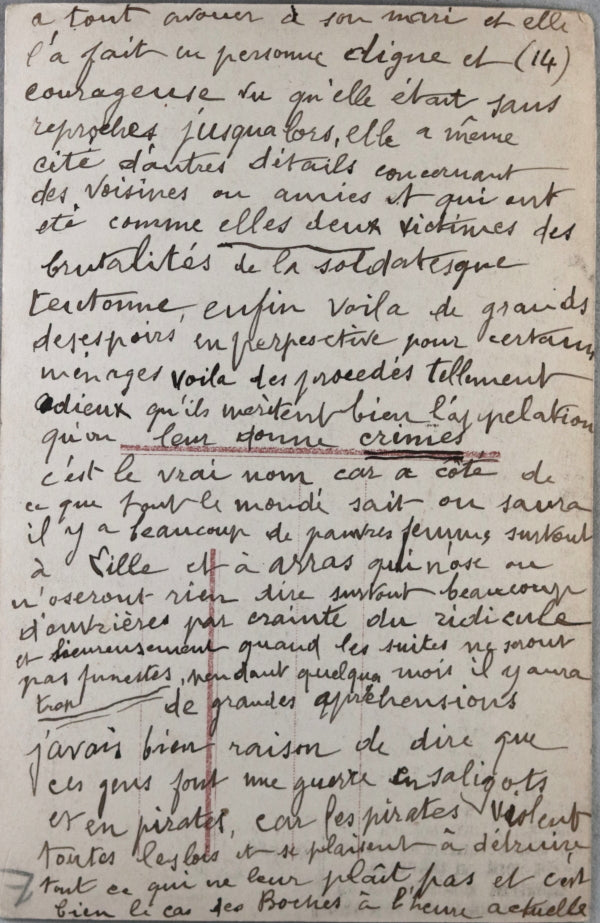 a tout avouer à son mari et elle
l'a fait en personne digne et (14)
courageuse vu qu'elle était sans
reproches jusqualors, elle a même
cité d'autres détails concernant
des voisines ou amies et qui ont
eté comme elles deux victimes des
brutalités de la soldatesque
teutonne, enfin voila de grands
desespoirs en perpective pour certains
ménages voila des procedés tellement
odieux qu'ils méritent bien l'appelation
qu'on leur donne crimes
c'est le vrai nom car a côté de
ce que tout le monde sait ou saura
il y a beaucoup de pauvres femmes surtout
à Lille et à arras qui n'ose ou
n'oseront rien dire surtout beaucoup
d'ouvrières par crainte du ridicule
et heureusement quand les suites ne seront
pas funestes, pendant quelque mois il y aura
trop de grandes apréhensions
j'avais bien raison de dire que
ces gens font une guerre en saligots
et en pirates, car les pirates violent
toutes les lois et se plaisent à détruire
tout ce qui ne leur plaît pas et c'est
7 bien le cas des Boches à l'heure actuelle